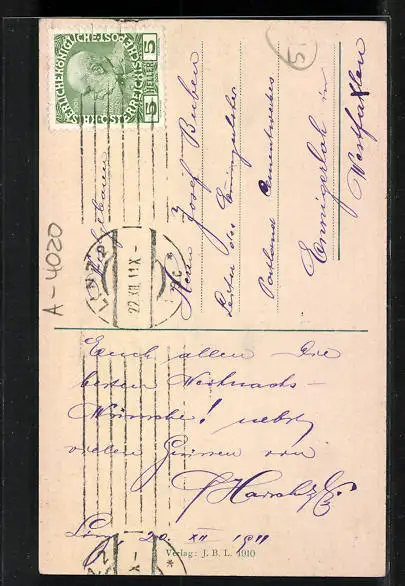 KAISERLICHE KÖNIGLICHE ÖSTERREICHISCHE POST
5 HELLER 5
LINZ 2
22.XII.11 X-
*1c*
5
A-4020
Herrn Josef Buben
Leiter des
Portland Cementwerkes
Ennigerloh in
Westfalen
Euch allen Die
besten Weihnachts-
Wünsche! nebst
vielen Grüssen von
Linz, 20. XII 1911
Verlag: J. B. L. 1910